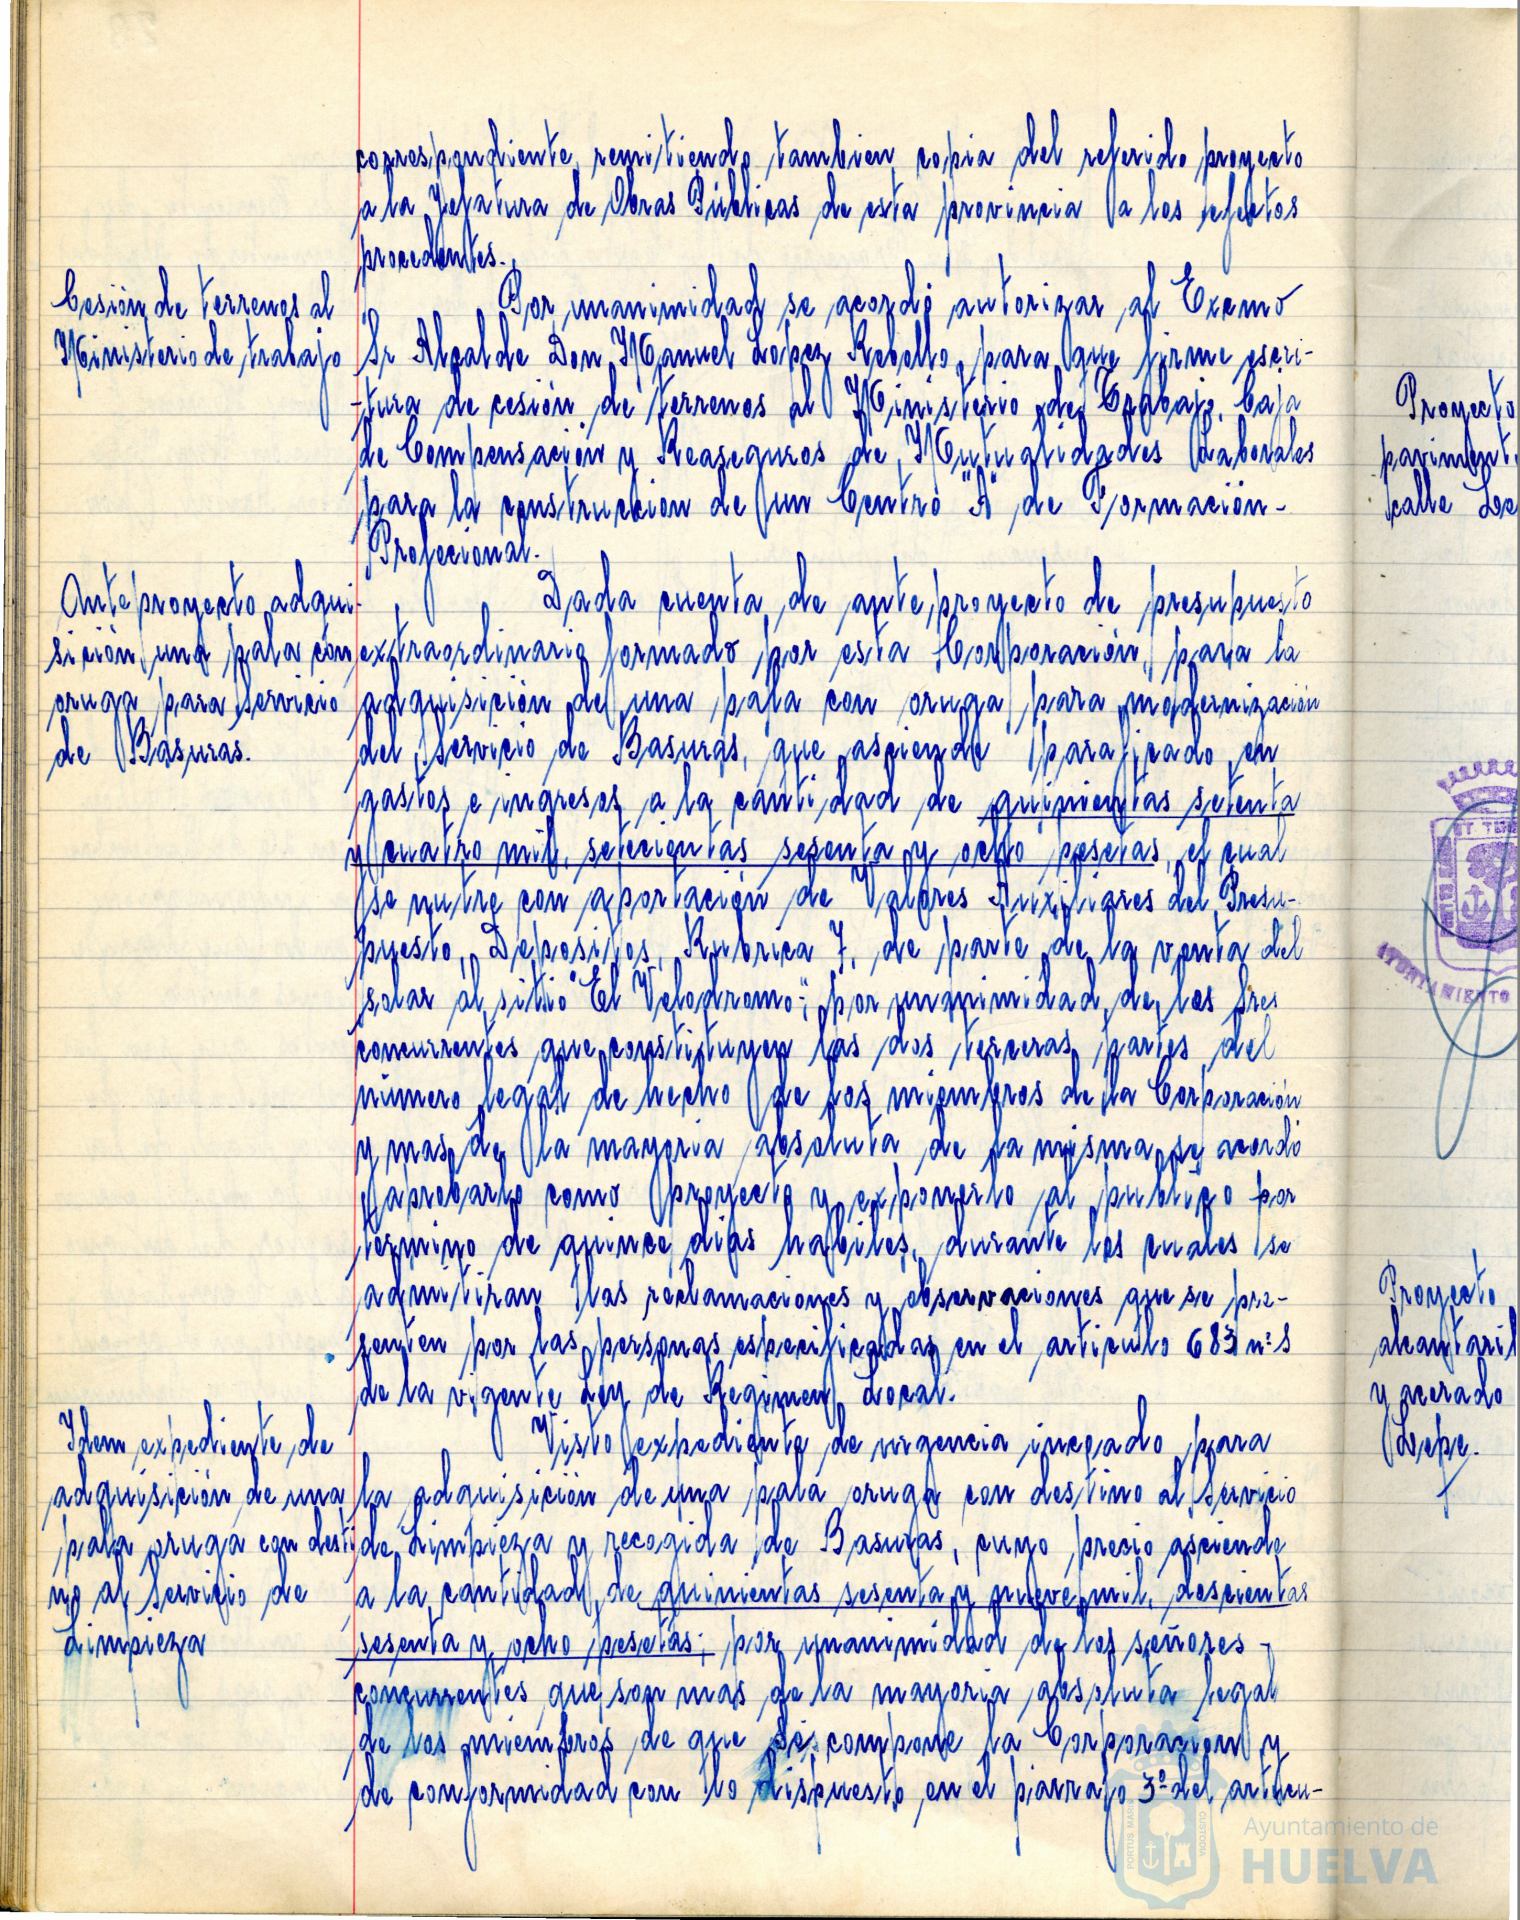 correspondiente, remitiendo tambien copia del referido proyecto
a la Jefatura de Obras Públicas de esta provincia a los efectos
procedentes.
Cesión de terrenos al
Ministerio de trabajo
Por unanimidad se acordó autorizar al Excmo
Sr Alcalde Don Manuel Lopez Rebollo, para que firme escri-
-tura de cesión de terrenos al Ministerio de Trabajo, Caja
de Compensación y Reaseguros de Mutualidades Laborales
para la construcción de un Centro "A" de Formación-
Profecional.
Anteproyecto adqui-
sición una pala con
oruga para servicio
de Basuras.
Dada cuenta de anteproyecto de presupuesto
extraordinario formado por esta Corporación, para la
adquisición de una pala con oruga para modernización
del Servicio de Basuras, que asciende parificado en
gastos e ingresos a la cantidad de quinientas setenta
y cuatro mil, setecientas sesenta y ocho pesetas, el cual
se nutre con aportación de Valores Auxiliares del Presu-
puesto, Depositos, Rubrica 7, de parte de la venta del
solar al sitio "El Velodromo"; por unanimidad de los Sres
concurrentes que constituyen las dos terceras partes del
número legal de hecho de los miembros de la Corporación
y mas de la mayoria absoluta de la misma se acordó
aprobarlo como proyecto y exponerlo al publico por
termino de quince dias habiles, durante los cuales se
admitiran las reclamaciones y observaciones que se pre-
senten por las personas especificadas en el articulo 683 nº S
de la vigente Ley de Regimen Local.
Idem expediente de
adquisición de una
pala oruga con desti
no al Servicio de
Limpieza
Visto expediente de urgencia incoado para
la adquisición de una pala oruga con destino al Servicio
de Limpieza y recogida de Basuras, cuyo precio asciende
a la cantidad de quinientas sesenta y nueve mil, doscientas
sesenta y ocho pesetas; por unanimidad de los señores-
concurrentes que son mas de la mayoria absoluta legal
de los miembros de que se compone la Corporación y
de conformidad con lo dispuesto en el parrafo 3º del articu-
Proyecto
paviment.
calle
ET TERR
AYUNTAMIENTO
Proyecto
alcantaril
y acerado
Lepe.
PORTUS MARIS
CUSTODIA
Ayuntamiento de
HUELVA